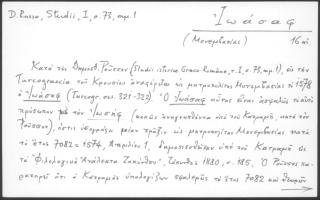 D. Russo, Studii, I, σ. 73, σημ. 1
Ἰωάσαφ
(Μονεμβασίας) 16 αἰ
Κατὰ τὸν Δημοσθ. Ῥοῦσσον (Studii istorice Greco-Române, τ. I, σ. 73, σημ. 1), εἰς τὴν
Turcograecia τοῦ Κρουσίου ἀναφέρεται ὡς μητροπολίτης Μονεμβασίας τὸ 1578
ὁ Ἰωάσαφ (Turcogr. σελ. 321-322). Ὁ Ἰωάσαφ οὗτος εἶναι ἀσφαλῶς τὸ αὐτὸ
πρόσωπον μὲ τὸν Ἰωσὴφ (κακῶς ἀναγνωσθέντα ὑπὸ τοῦ Κατραμῆ, κατὰ τὸν
Ῥοῦσσον), ὅστις ὑπογράφει πρᾶξιν ὡς μητροπολίτης Μονεμβασίας κατὰ
τὸ ἔτος 7082 = 1574, Ἀπριλίου 1, δημοσιευθεῖσαν ὑπὸ τοῦ Κατραμῆ εἰς
τὰ "Φιλολογικὰ Ἀνάλεκτα Ζακύνθου", Ζάκυνθος 1880, σ. 185. Ὁ Ῥοῦσσος πα-
ρατηρεῖ ὅτι ὁ Κατραμῆς ὑπολογίζων ἐσφαλμένως τὸ ἔτος 7082 καὶ θεωρῶν